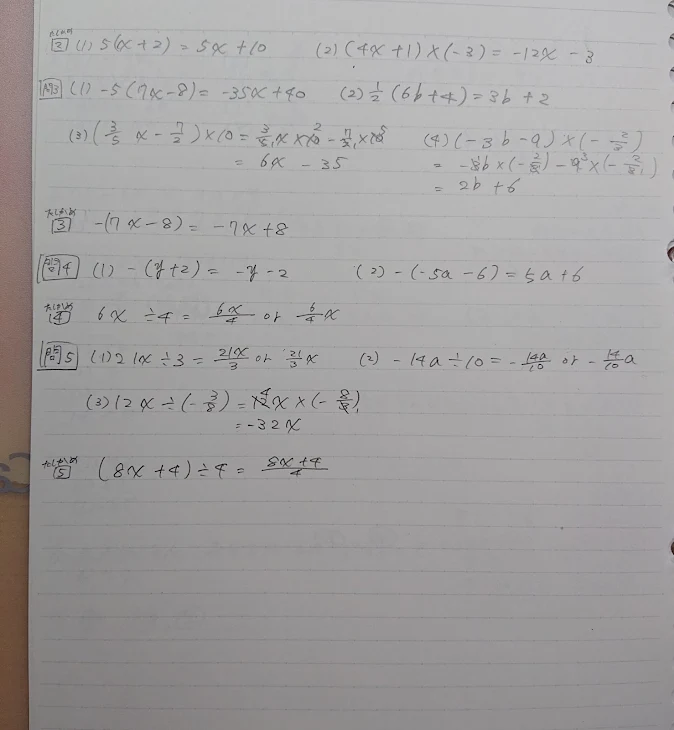 たしかめ
2 (1) 5(x+2) = 5x+10 (2) (4x+1)×(-3) = -12x-3
問3 (1) -5(7x-8) = -35x+40 (2) 1/2 (6b+4) = 3b+2
(3) (3/5 x - 7/2)×10 = 3/5 x×10 - 7/2×10 (4) (-3b-9)×(-2/3)
= 6x-35 = -3b×(-2/3)-9×(-2/3)
= 2b+6
たしかめ
3 -(7x-8) = -7x+8
問4 (1) -(y+2) = -y-2 (2) -(-5a-6) = 5a+6
たしかめ
4 6x÷4 = 6x/4 or 6/4 x
問5 (1) 21x÷3 = 21x/3 or 21/3 x (2) -14a÷10 = -14a/10 or -14/10 a
(3) 12x÷(-3/8) = 12x×(-8/3)
= -32x
たしかめ
5 (8x+4)÷4 = 8x+4/4